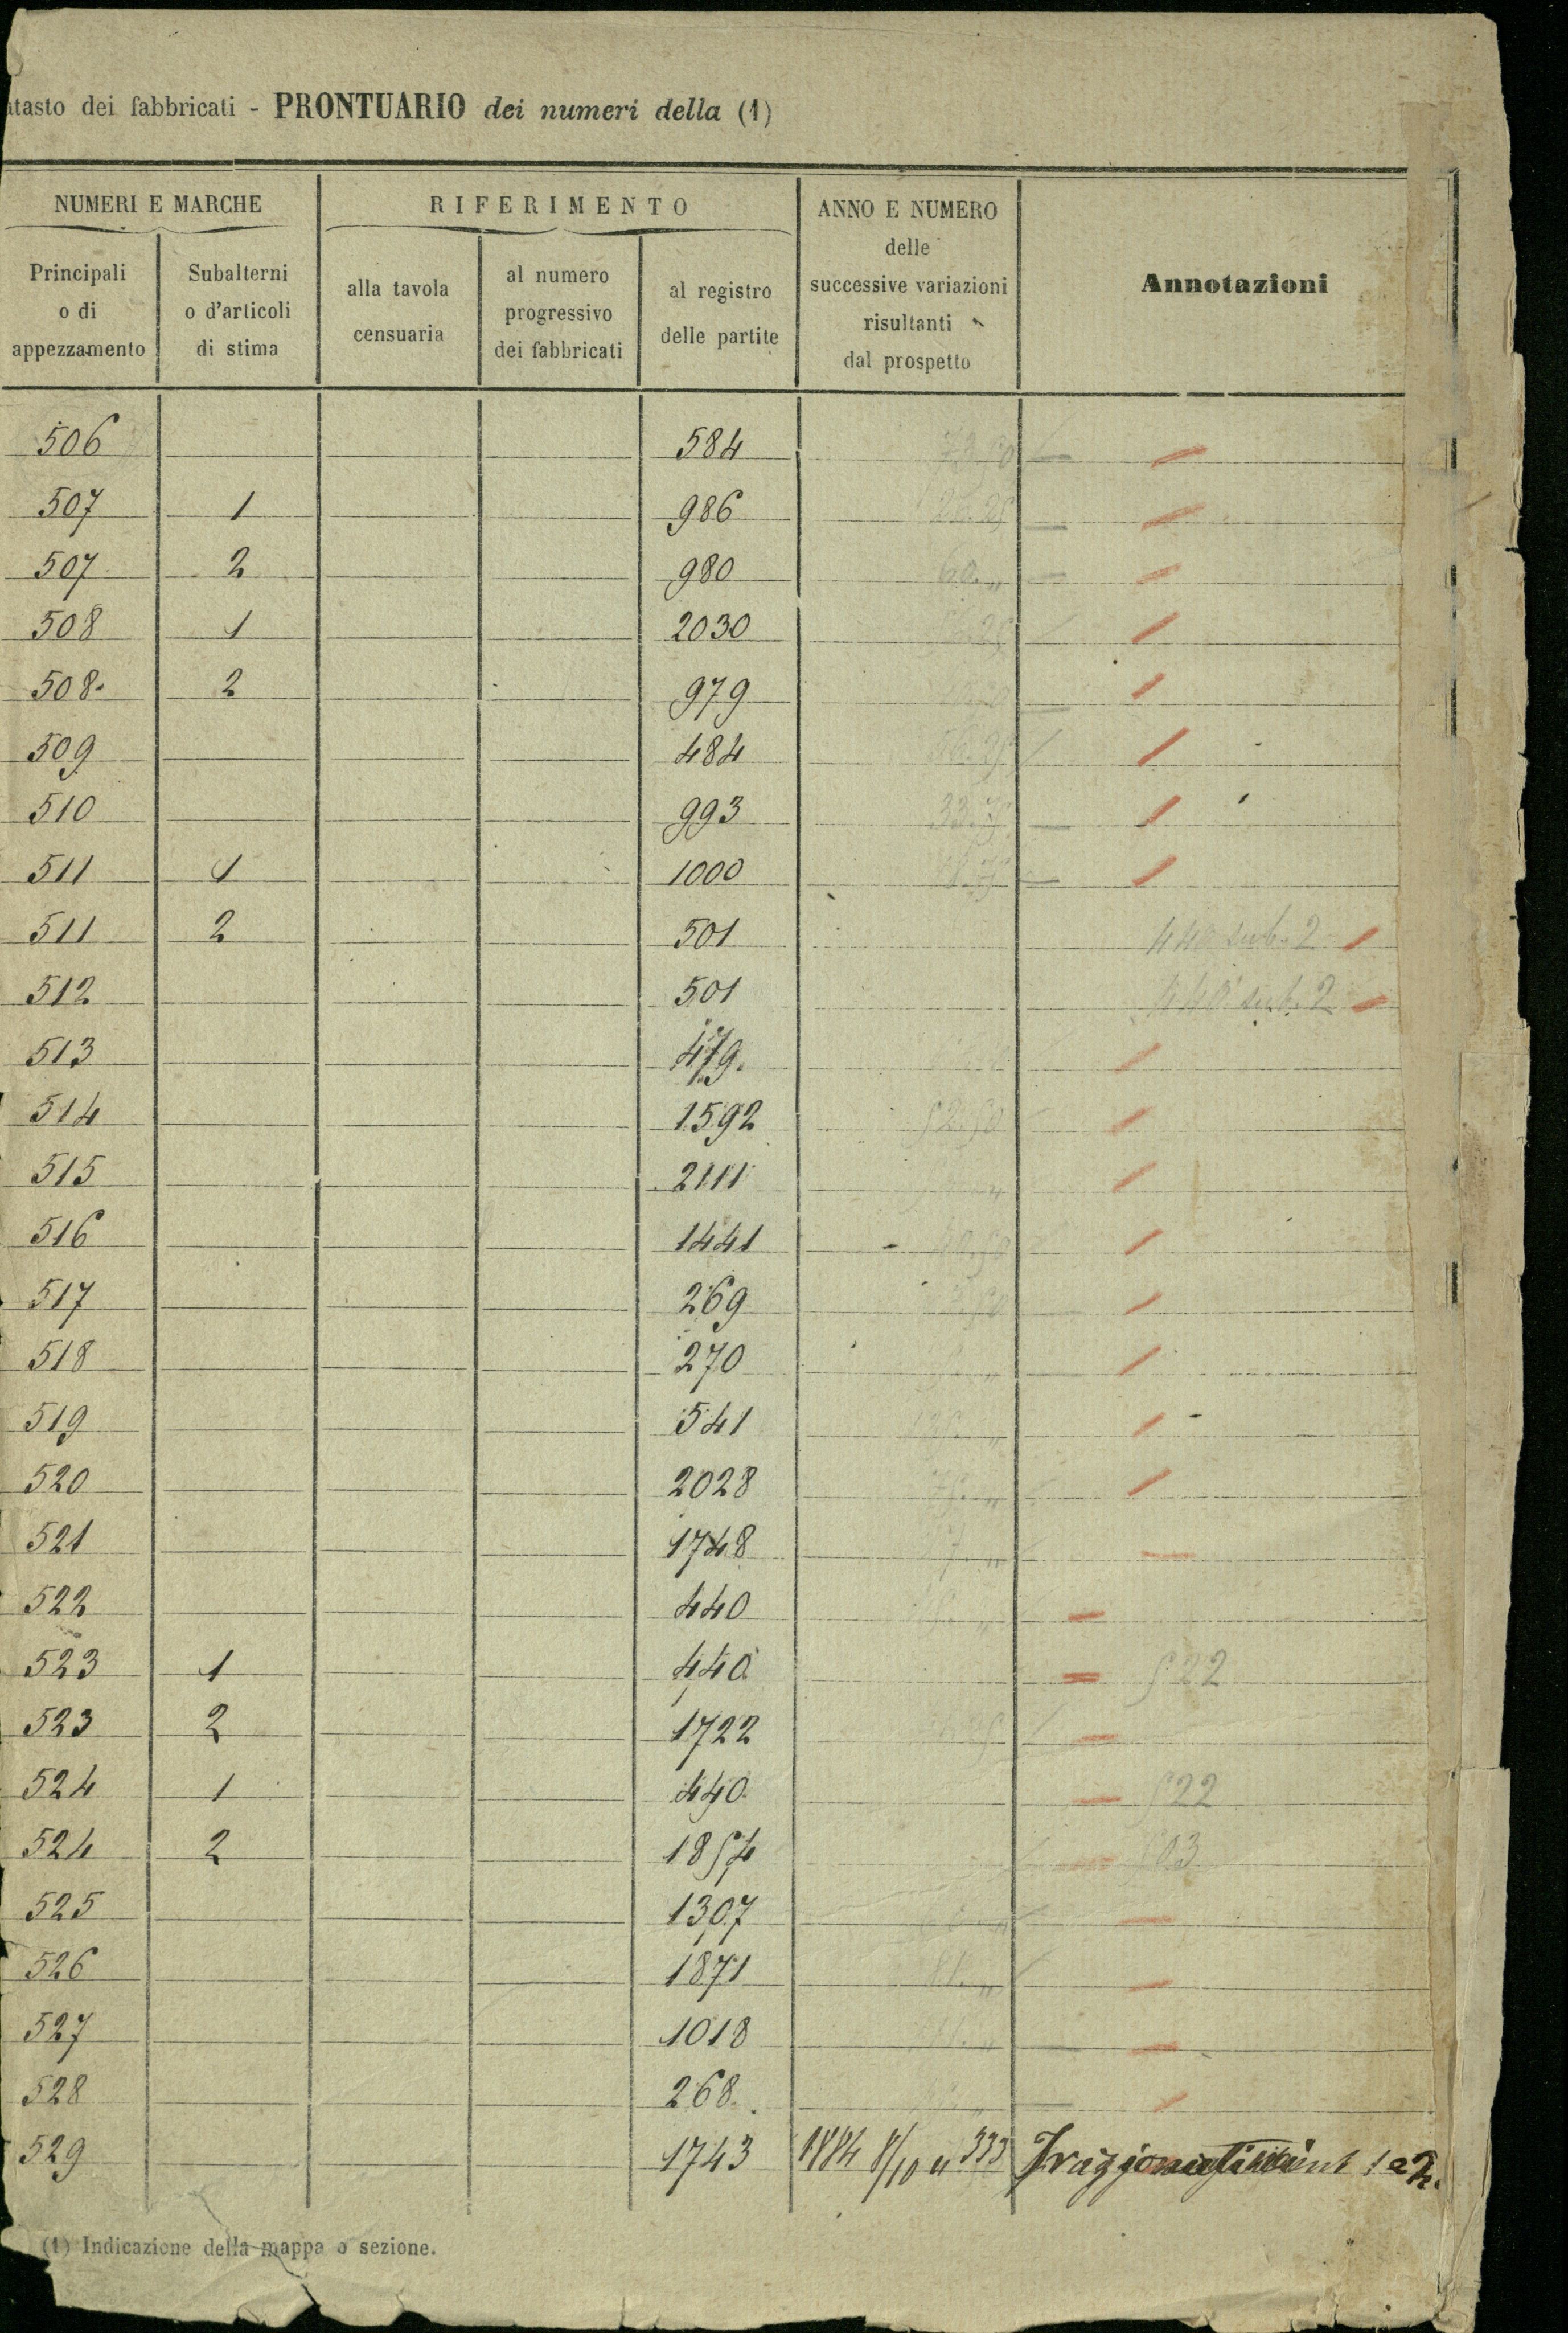 atasto dei fabbricati - PRONTUARIO dei numeri della (1)
NUMERI E MARCHE RIFERIMENTO ANNO E NUMERO delle successive variazioni risultanti dal prospetto Annotazioni
Principali o di appezzamento Subalterni o d'articoli di stima alla tavola censuaria al numero progressivo dei fabbricati al registro delle partite
506 584
507 1 986
507 2 980 60. „
508 1 2030
508. 2 979
509 484
510 993
511 1 1000
511 2 501 440 sub. 2
512 501 440 sub. 2
513 479.
514 1592 52.50
515 2111
516 1441
517 269
518 270
519 541
520 2028
521 1748
522 440
523 1 440 522
523 2 1722
524 1 440 522
524 2 1854 503
525 1307
526 1871
527 1018
528 268
529 1743 1884 8/10 n 333 1 e 2.
(1) Indicazione della mappa o sezione.